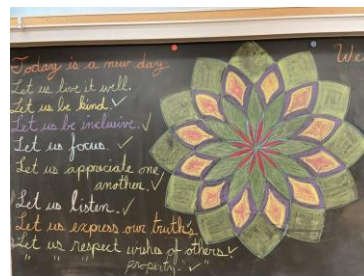 Today is a new day.
Let us live it well.
Let us be kind. ✓
Let us be inclusive. ✓
Let us focus. ✓
Let us appreciate one
another. ✓
Let us listen. ✓
Let us express our truths.
Let us respect wishes of others. ✓
" " " property. " ✓
We